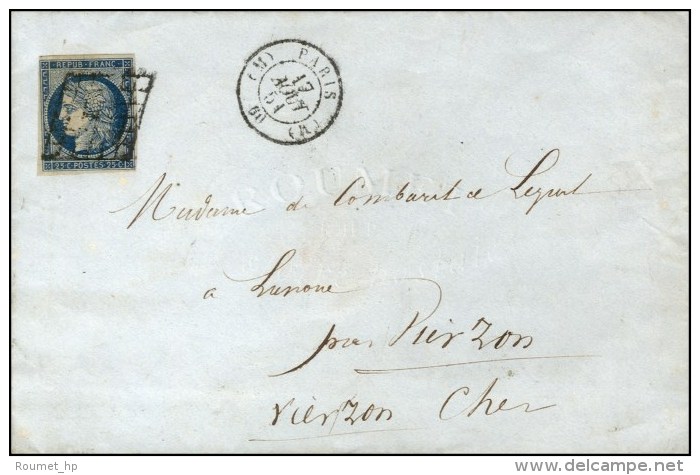 REPUB. FRANC.
25 C. POSTES 25 C.
(M) PARIS (M)
17
AOUT
51
60
Madame de Combarit de Leyval
à
par Vierzon
Vierzon Cher
Roumet_hp
www.delcampe.net